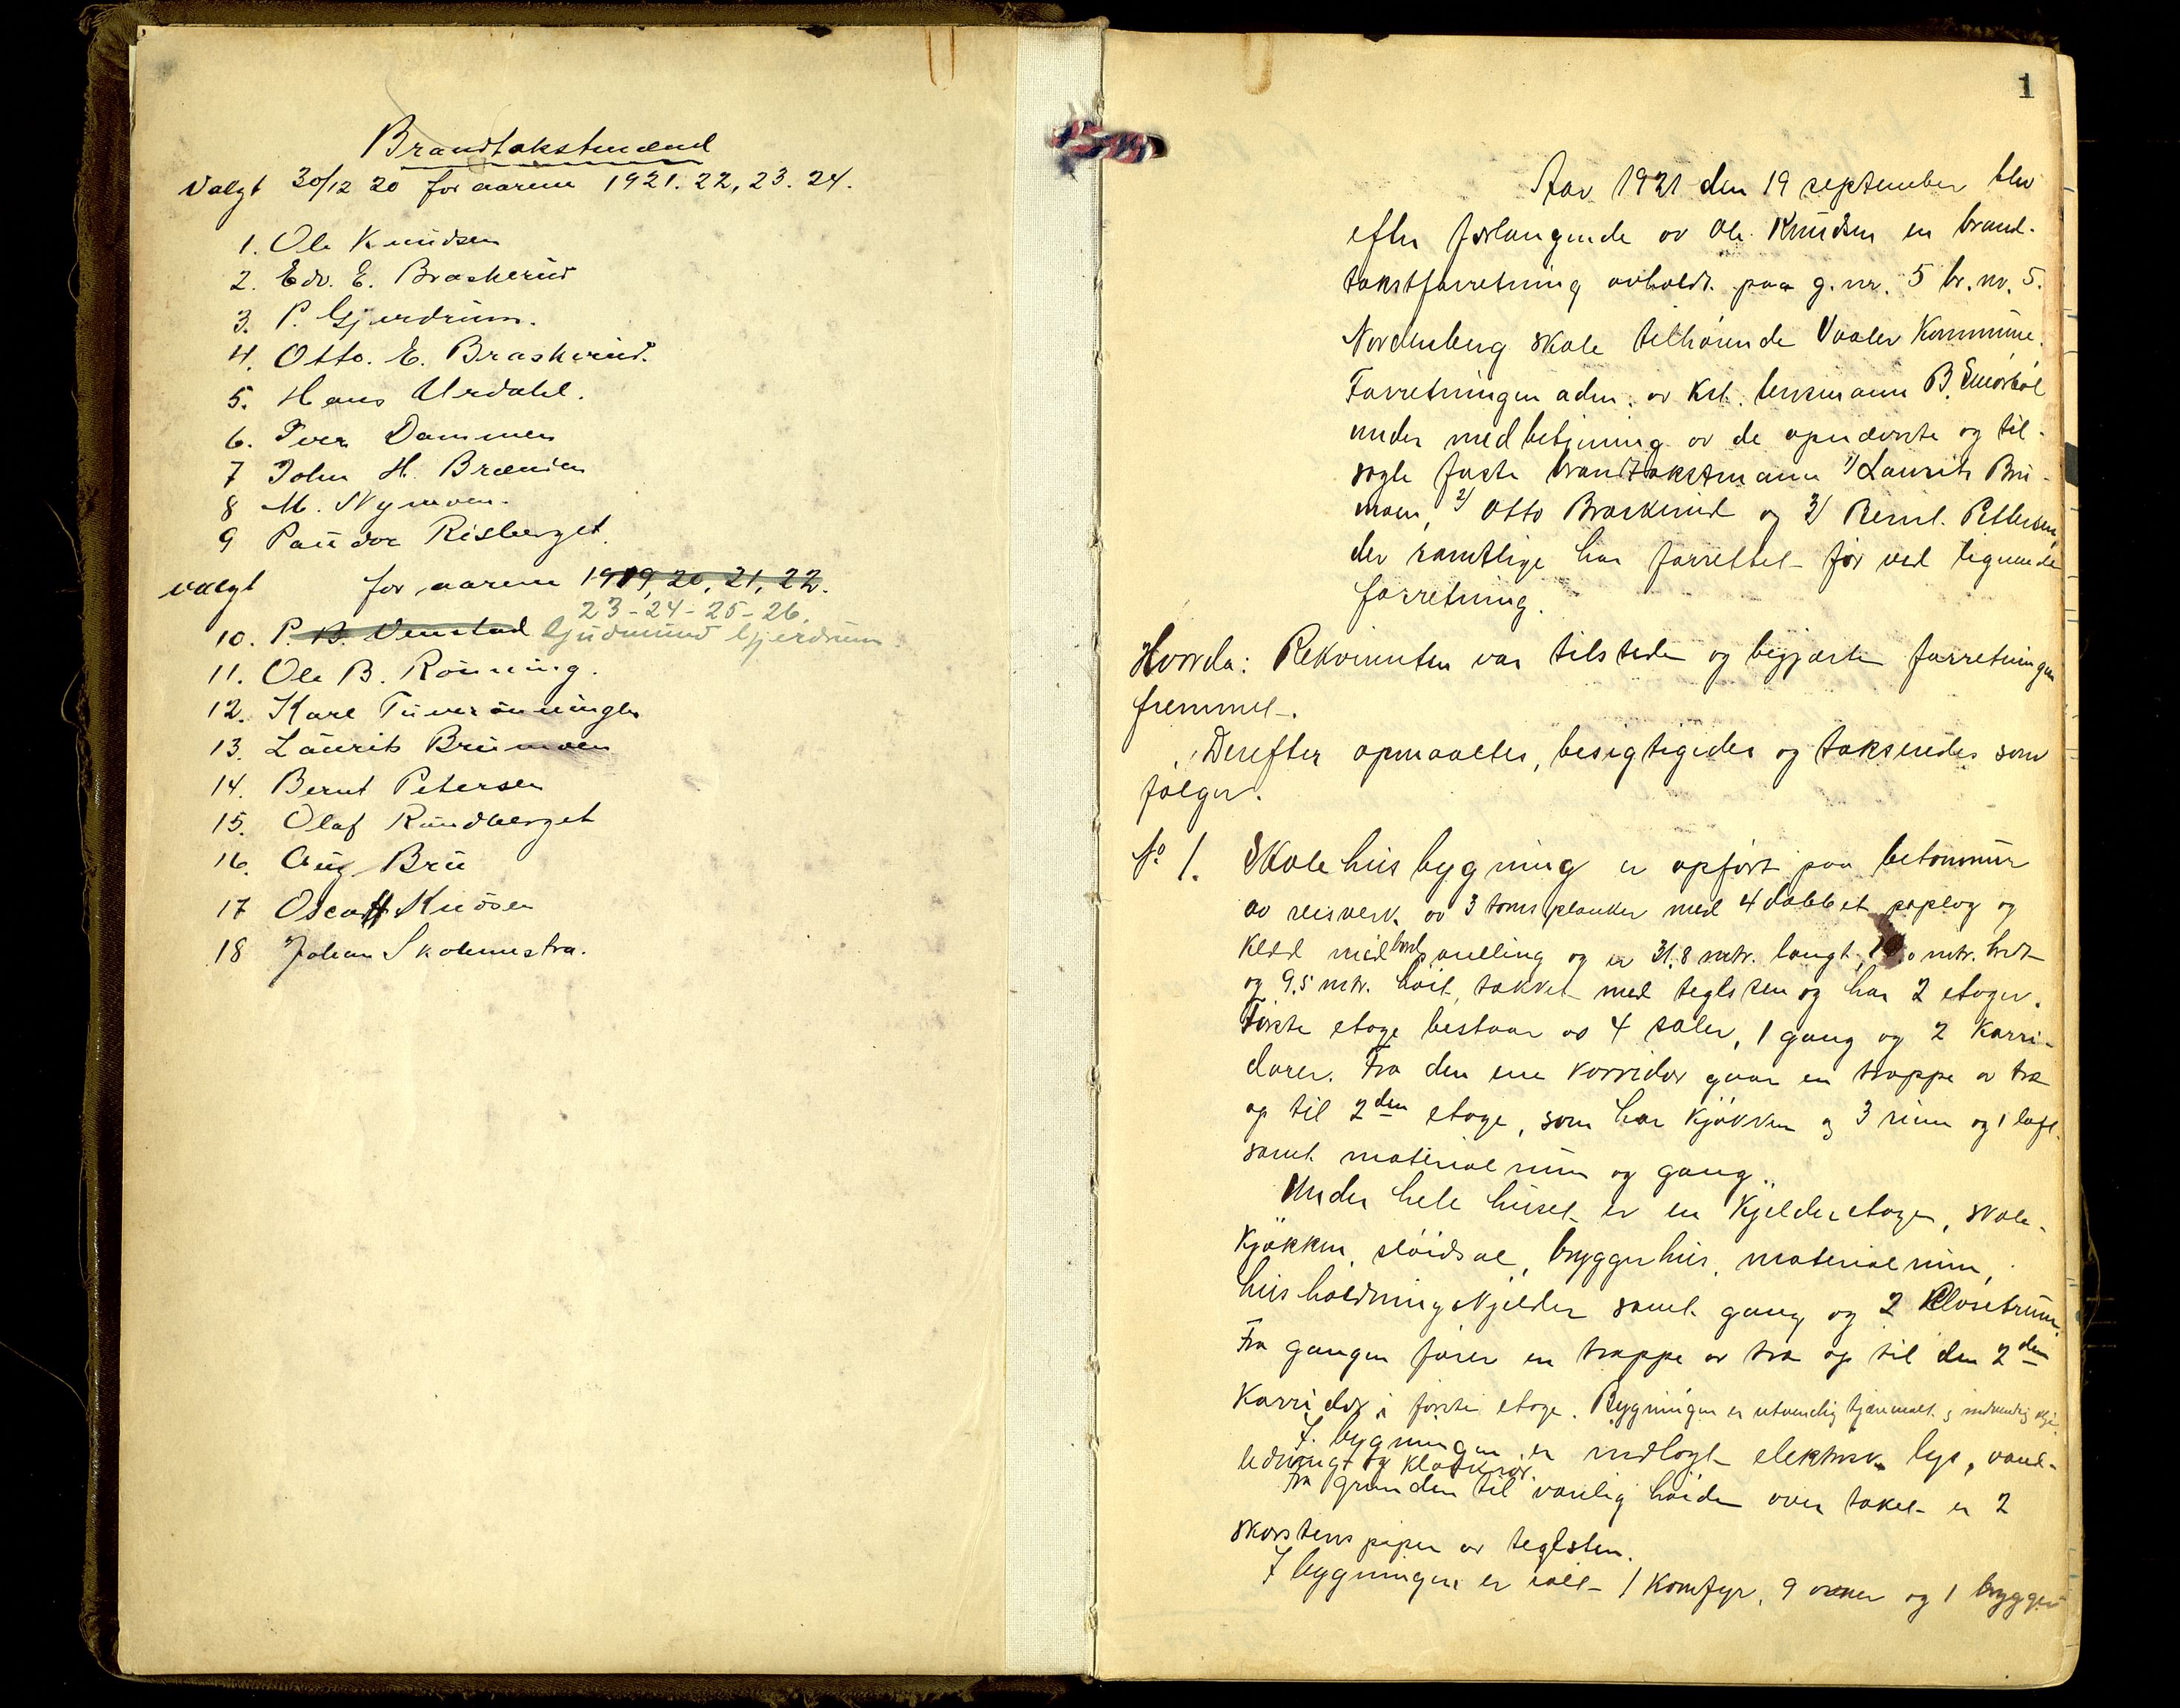 Brandtakstmænd
Valgt 30/12 20 for aarene 1921. 22, 23. 24.
1. Ole Knudsen
2. Edv. E. Braskerud
3. P. Gjerdrum.
4. Otto. E. Braskerud.
5. Hans Urdahl.
6. Iver Dammen
7 John H. Brænden
8 M. Nymoen.
9 Paul dor Risberget.
valgt for aarene 1919, 20, 21, 22.
23-24-25-26.
10. P. B. Venstad Gudmund Gjerdrum
11. Ole B. Rönning.
12. Kare
13. Laurits Brumoen
14. Bernt Petersen
15. Olaf Rundberget
16. Aug Bru
17 Oscar Knösen
18 Johan Skolmestra.
1
Aar 1921 den 19 september blev
efter forlangende av Ole Knudsen en brand-
takstforretning avholdt paa g. nr. 5 br. nr. 5.
Nordenberg skole tilhørende Vaaler Kommune.
Forretningen adm. av Kst. lensmann B.
under medbetjening av de opnævnte og til-
sagte faste brandtakstmænn 1/ Laurits Bru-
moen, 2/ Otto Braskerud og 3/ Bernt. Pettersen,
der samtlige har forrettet før ved lignende
forretning.
Hvorda: Rekvirenten var tilstede og begjærte forretningen
fremmet.
Derefter opmaaltes, besigtigedes og takseredes som
følger:
No 1. Skolehusbygning er opført paa betonmur
av reisverk av 3 toms planker med 4 dobbelt paplag og
klædd med bord panelling og er 31.8 mtr. langt, mtr. bredt
og 9.5 mtr. høit, takket med teglsten og har 2 etager.
Første etage bestaar av 4 saler, 1 gang og 2 korri-
dorer. Fra den ene korridor gaar en trappe av træ
op til 2den etage, som har kjøkken og 3 rum og 1 loft
samt materialrum og gang.
Under hele huset er en kjelderetage, skole-
kjøkken, sløidsal, bryggerhus, materialrum,
husholdningskjelder samt gang og 2 Closetrum.
Fra gangen fører en trappe av træ op til den 2den
korridor i første etage. Bygningen er utvendig tjæremalt og indvendig
I bygningen er indlagt elektrisk lys, vand-
ledning og kloakrør.
Fra grunden til vanlig høide over taket er 2
skorstens piper av teglsten.
I bygningen er ialt 1 Komfyr, 9 ovner og 1 brygge